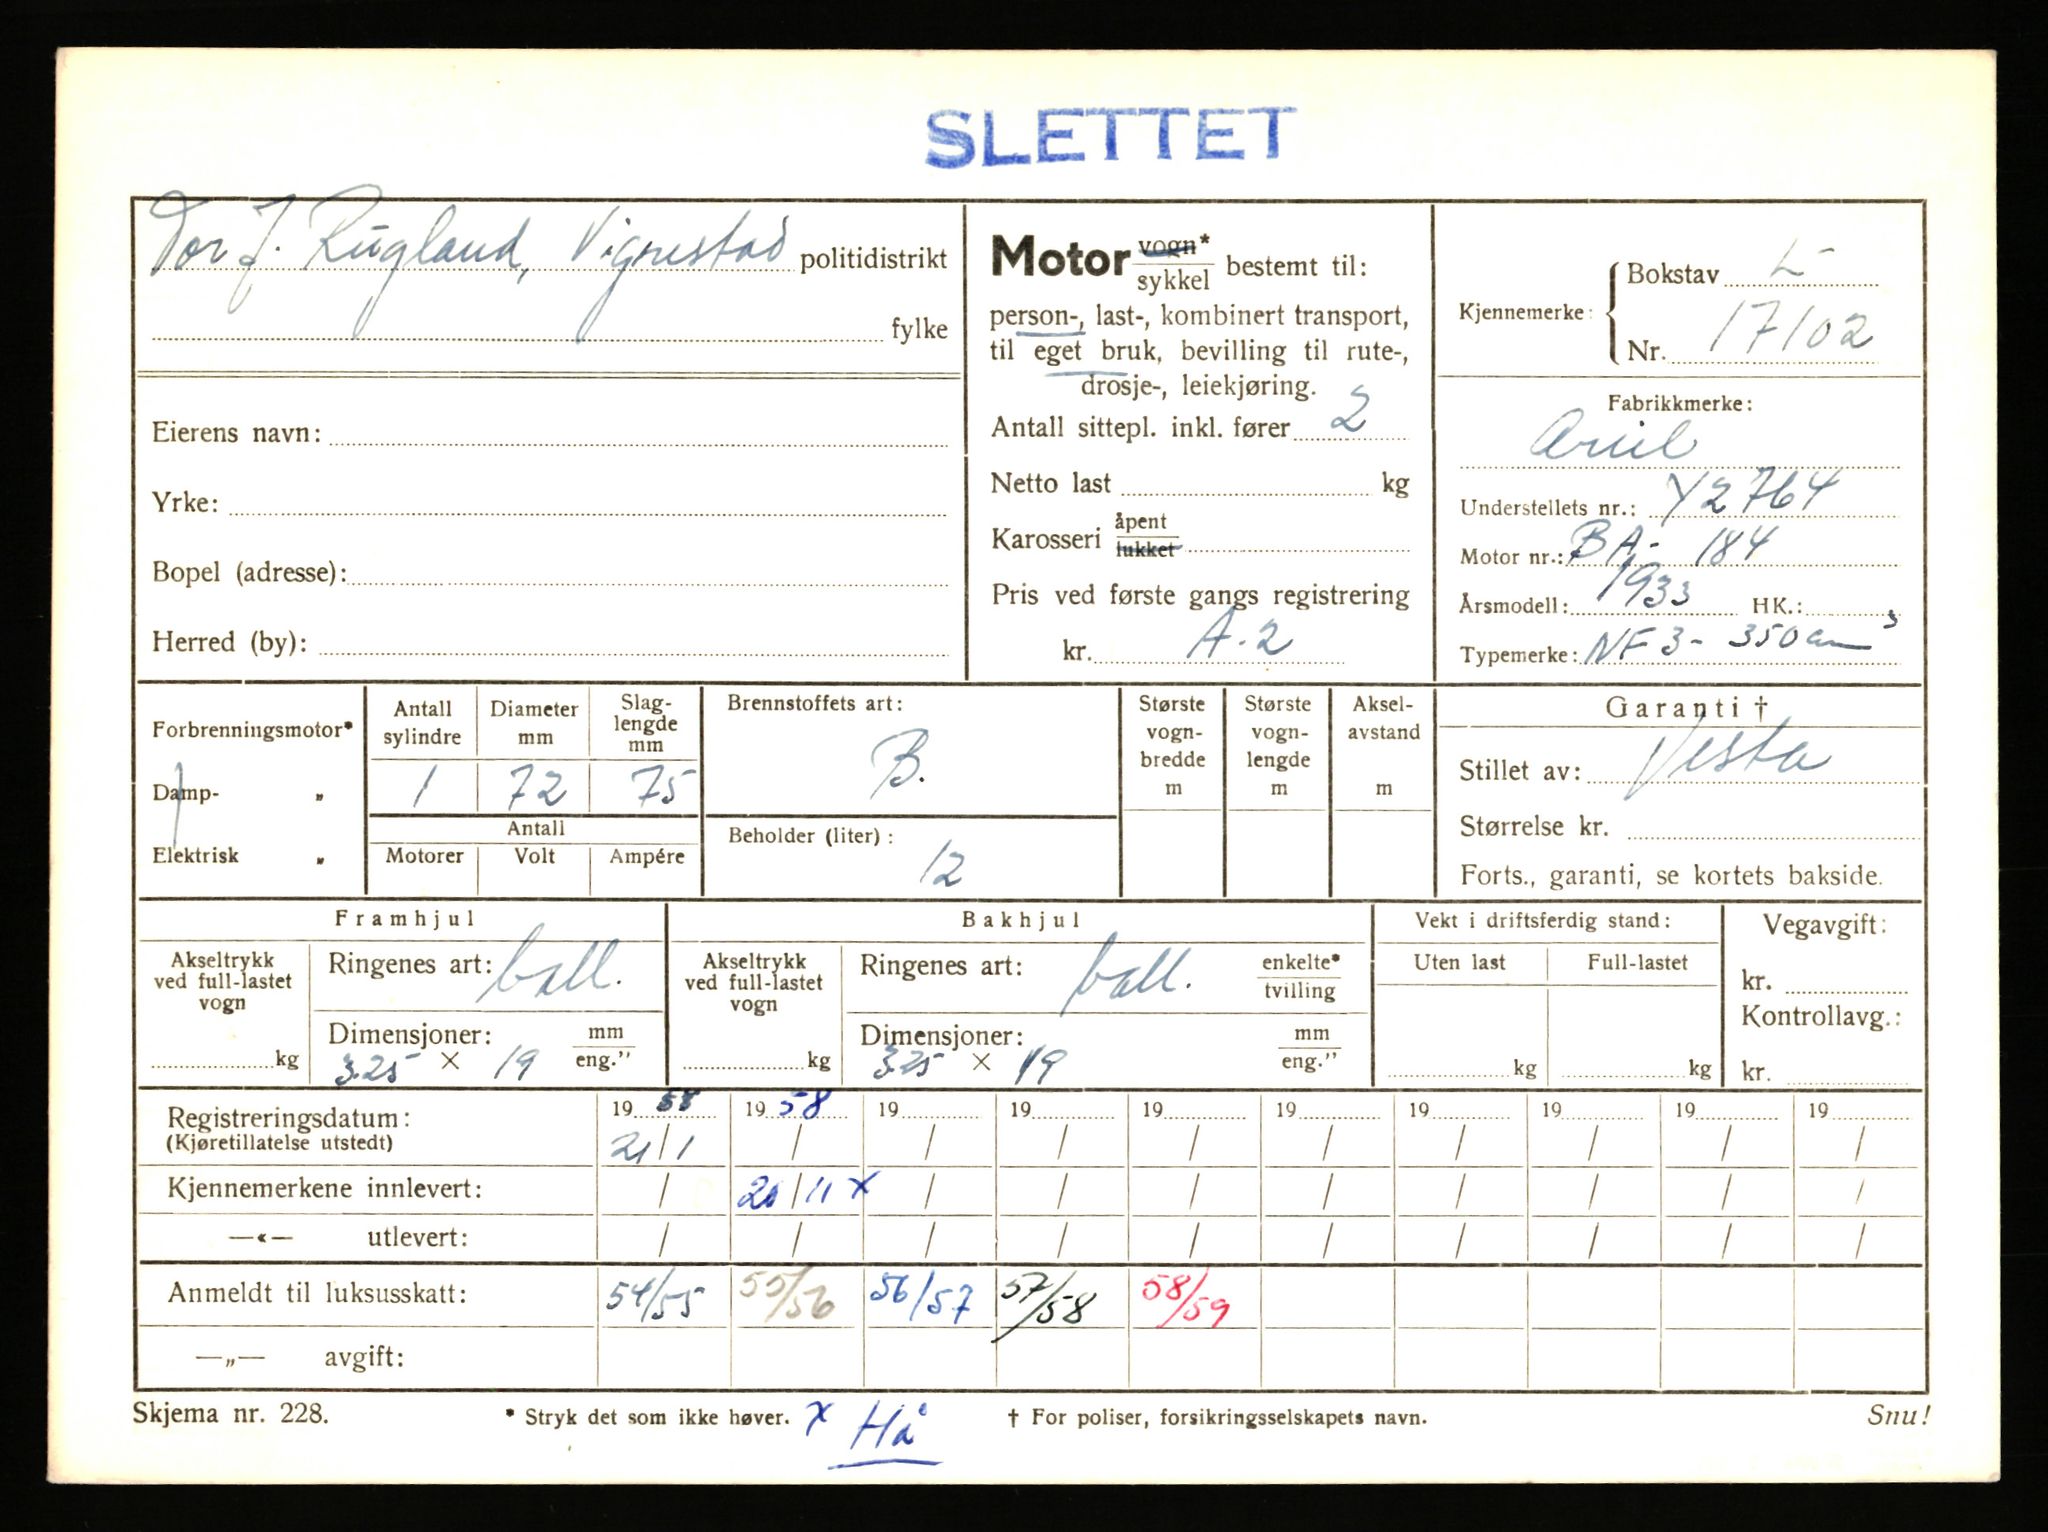 SLETTET
Tor J. Rugland, Vigrestad politidistrikt
fylke
Eierens navn:
Yrke:
Bopel (adresse):
Herred (by):
Motor vogn* sykkel bestemt til:
person-, last-, kombinert transport,
til eget bruk, bevilling til rute-,
drosje-, leiekjøring.
Antall sittepl. inkl. fører 2
Netto last kg
Karosseri åpent lukket
Pris ved første gangs registrering
kr. A.2
Kjennemerke: Bokstav L
Nr. 17102
Fabrikkmerke:
Ariel
Understellets nr.: Y2764
Motor nr.: BA- 184
Årsmodell: 1933 HK.:
Typemerke: NF3- 350 cm³
Forbrenningsmotor*
Damp- „
Elektrisk „
Antall sylindre
Diameter mm
Slaglengde mm
1 72 75
Antall
Motorer Volt Ampére
Brennstoffets art:
B.
Beholder (liter):
12
Største vognbredde m
Største vognlengde m
Akselavstand m
Garanti †
Stillet av: Vesta
Størrelse kr.
Forts., garanti, se kortets bakside.
Framhjul
Akseltrykk ved full-lastet vogn
kg
Ringenes art: ball.
Dimensjoner: mm eng."
3.25 × 19
Bakhjul
Akseltrykk ved full-lastet vogn
kg
Ringenes art: ball. enkelte* tvilling
Dimensjoner: mm eng."
3.25 × 19
Vekt i driftsferdig stand:
Uten last Full-lastet
kg kg
Vegavgift:
kr.
Kontrollavg.:
kr.
Registreringsdatum: 19 58 19 58 19 19 19 19 19 19 19 19
(Kjøretillatelse utstedt) 21/1 / / / / / / / / /
Kjennemerkene innlevert: / 20/11 x / / / / / / / /
—«— utlevert: / / / / / / / / / /
Anmeldt til luksusskatt: 54/55 55/56 56/57 57/58 58/59
—„— avgift:
Skjema nr. 228. * Stryk det som ikke høver. x Hå † For poliser, forsikringsselskapets navn. Snu!